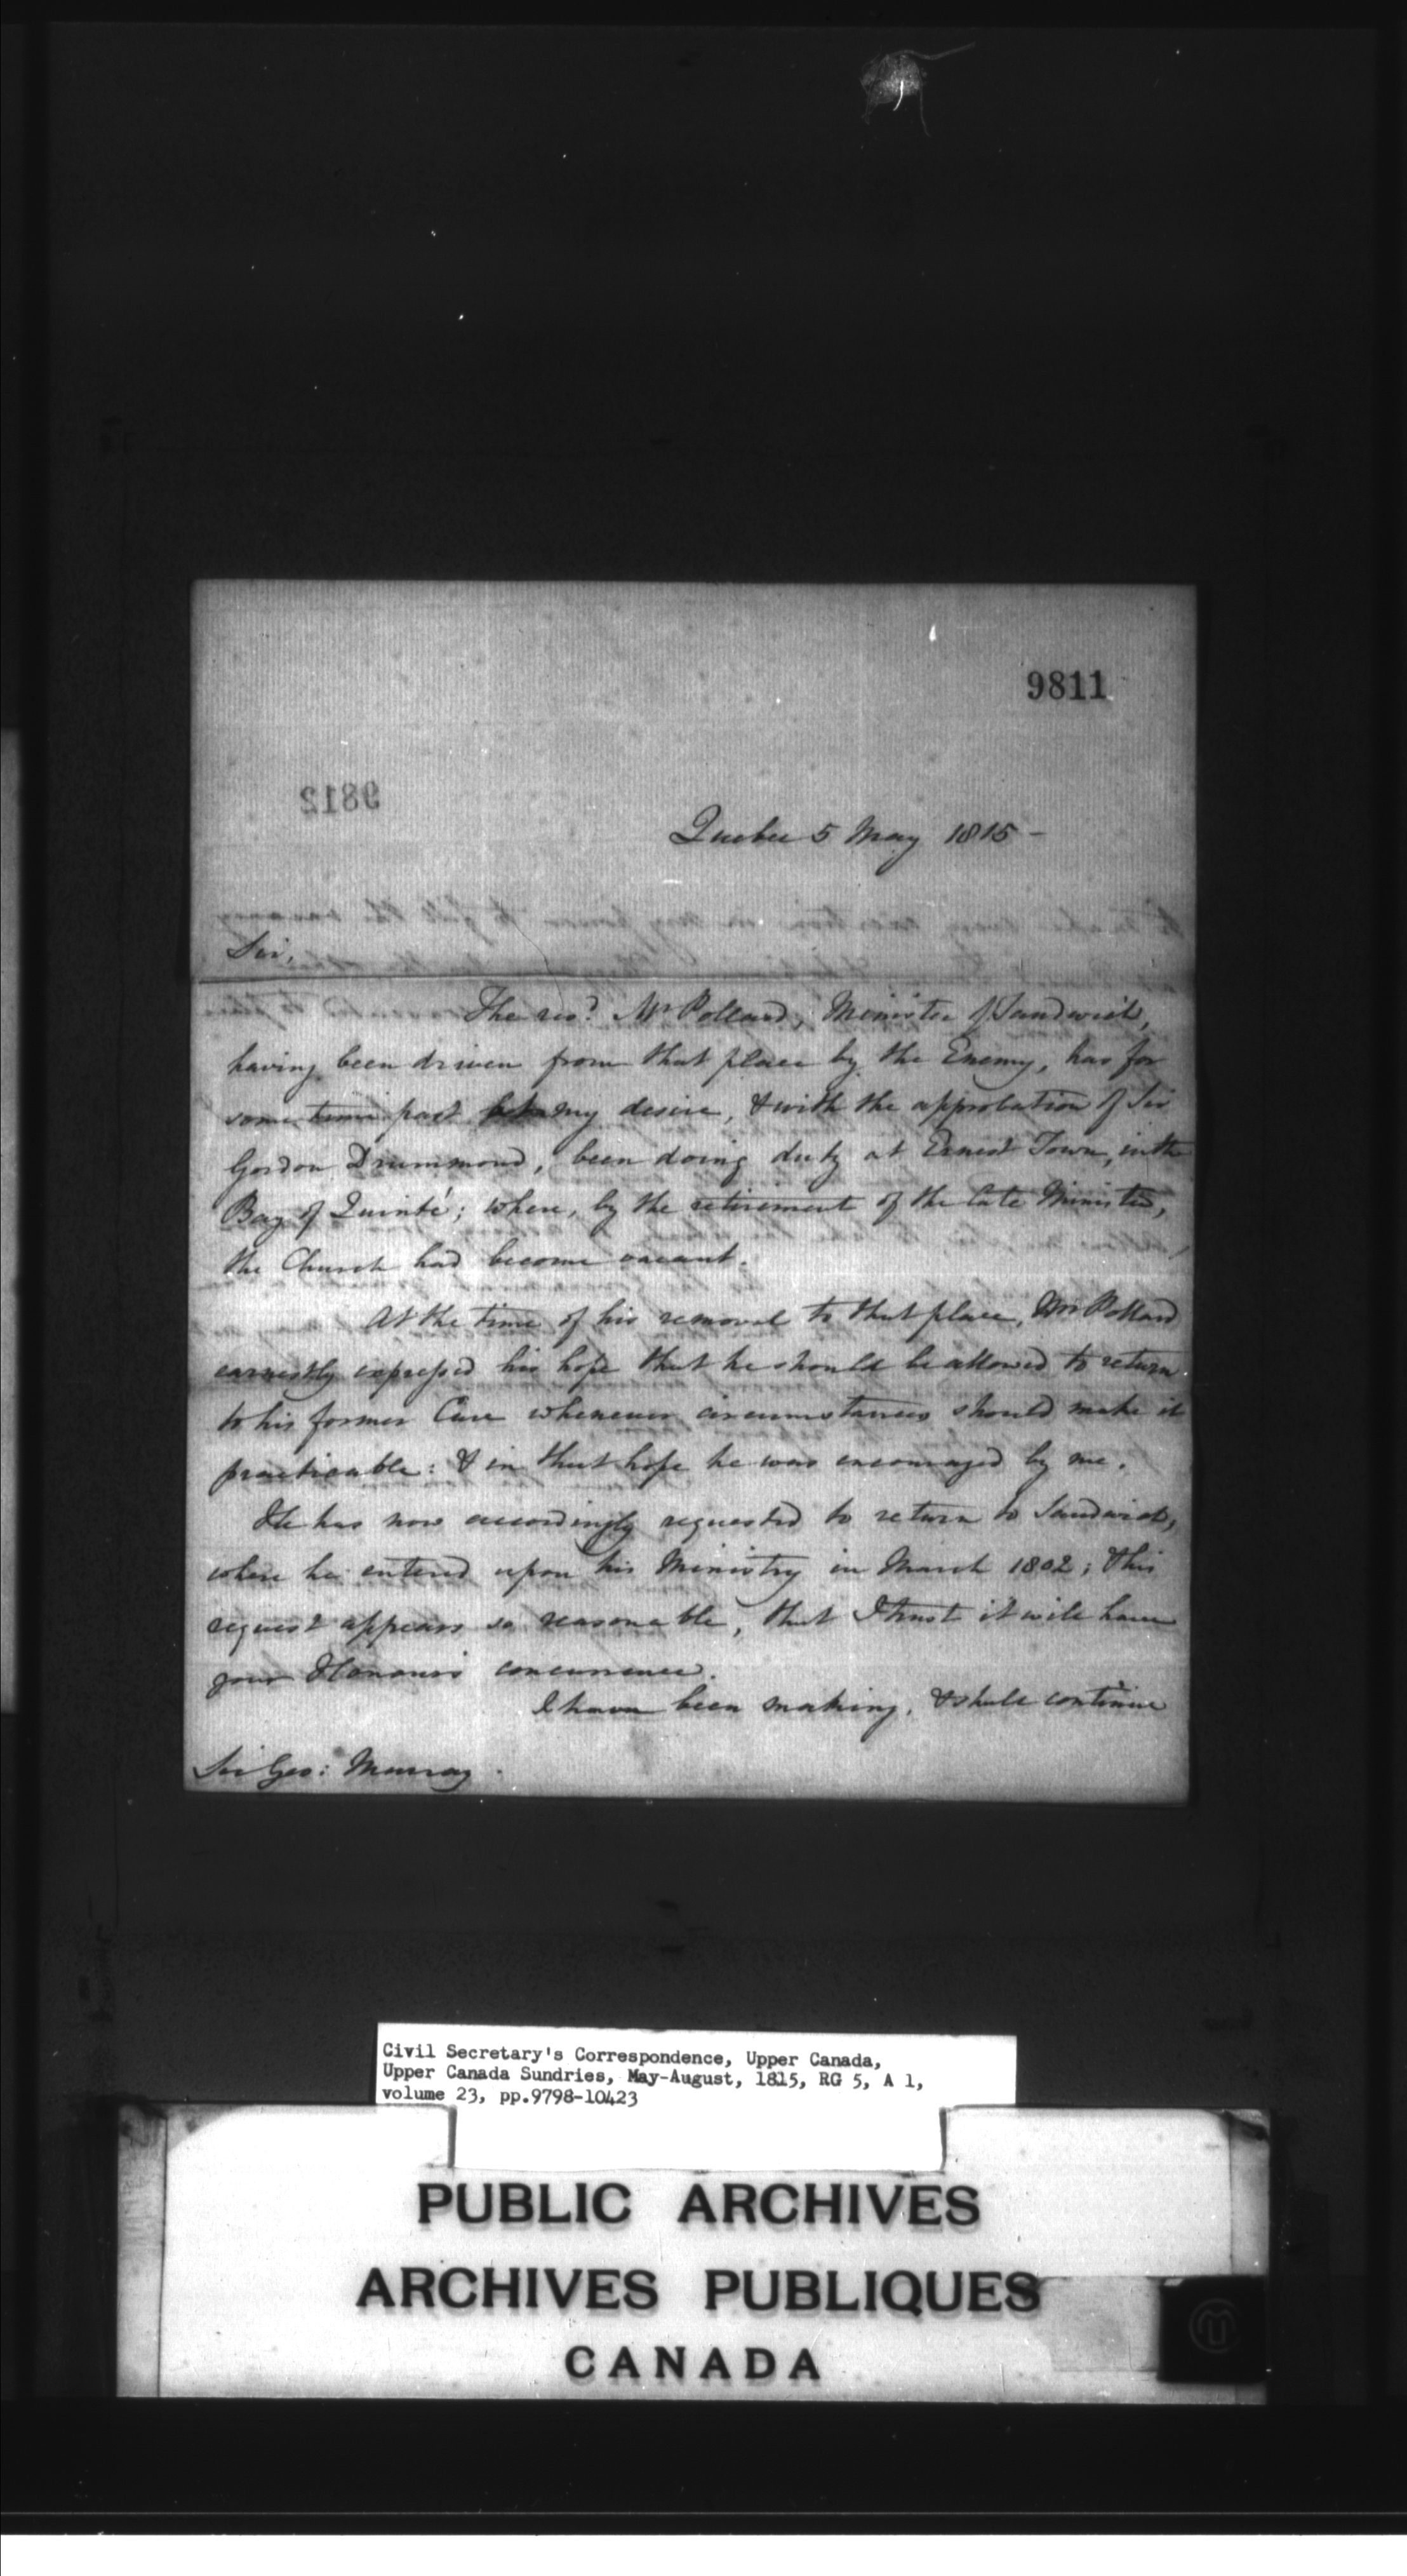 9811
9812
Quebec 5 May 1815 -
Sir,
The revd. Mr Pollard, Minister of Sandwich,
having been driven from that place by the Enemy, has for
some time past my desire, & with the approbation of Sir
Gordon Drummond, been doing duty at Ernest Town, in the
Bay of Quinté; where, by the retirement of the late Minister,
the Church had become vacant.
At the time of his removal to that place, Mr Pollard
earnestly expressed his hope that he should be allowed to return
to his former Cure whenever circumstances should make it
practicable: & in that hope he was encouraged by me.
He has now accordingly requested to return to Sandwich,
where he entered upon his Ministry in March 1802; & his
request appears so reasonable, that I trust it will have
your Honour's concurrence.
I have been making, & shall continue
Sir Geo: Murray
Civil Secretary's Correspondence, Upper Canada,
Upper Canada Sundries, May-August, 1815, RG 5, A 1,
volume 23, pp.9798-10423
PUBLIC ARCHIVES
ARCHIVES PUBLIQUES
CANADA